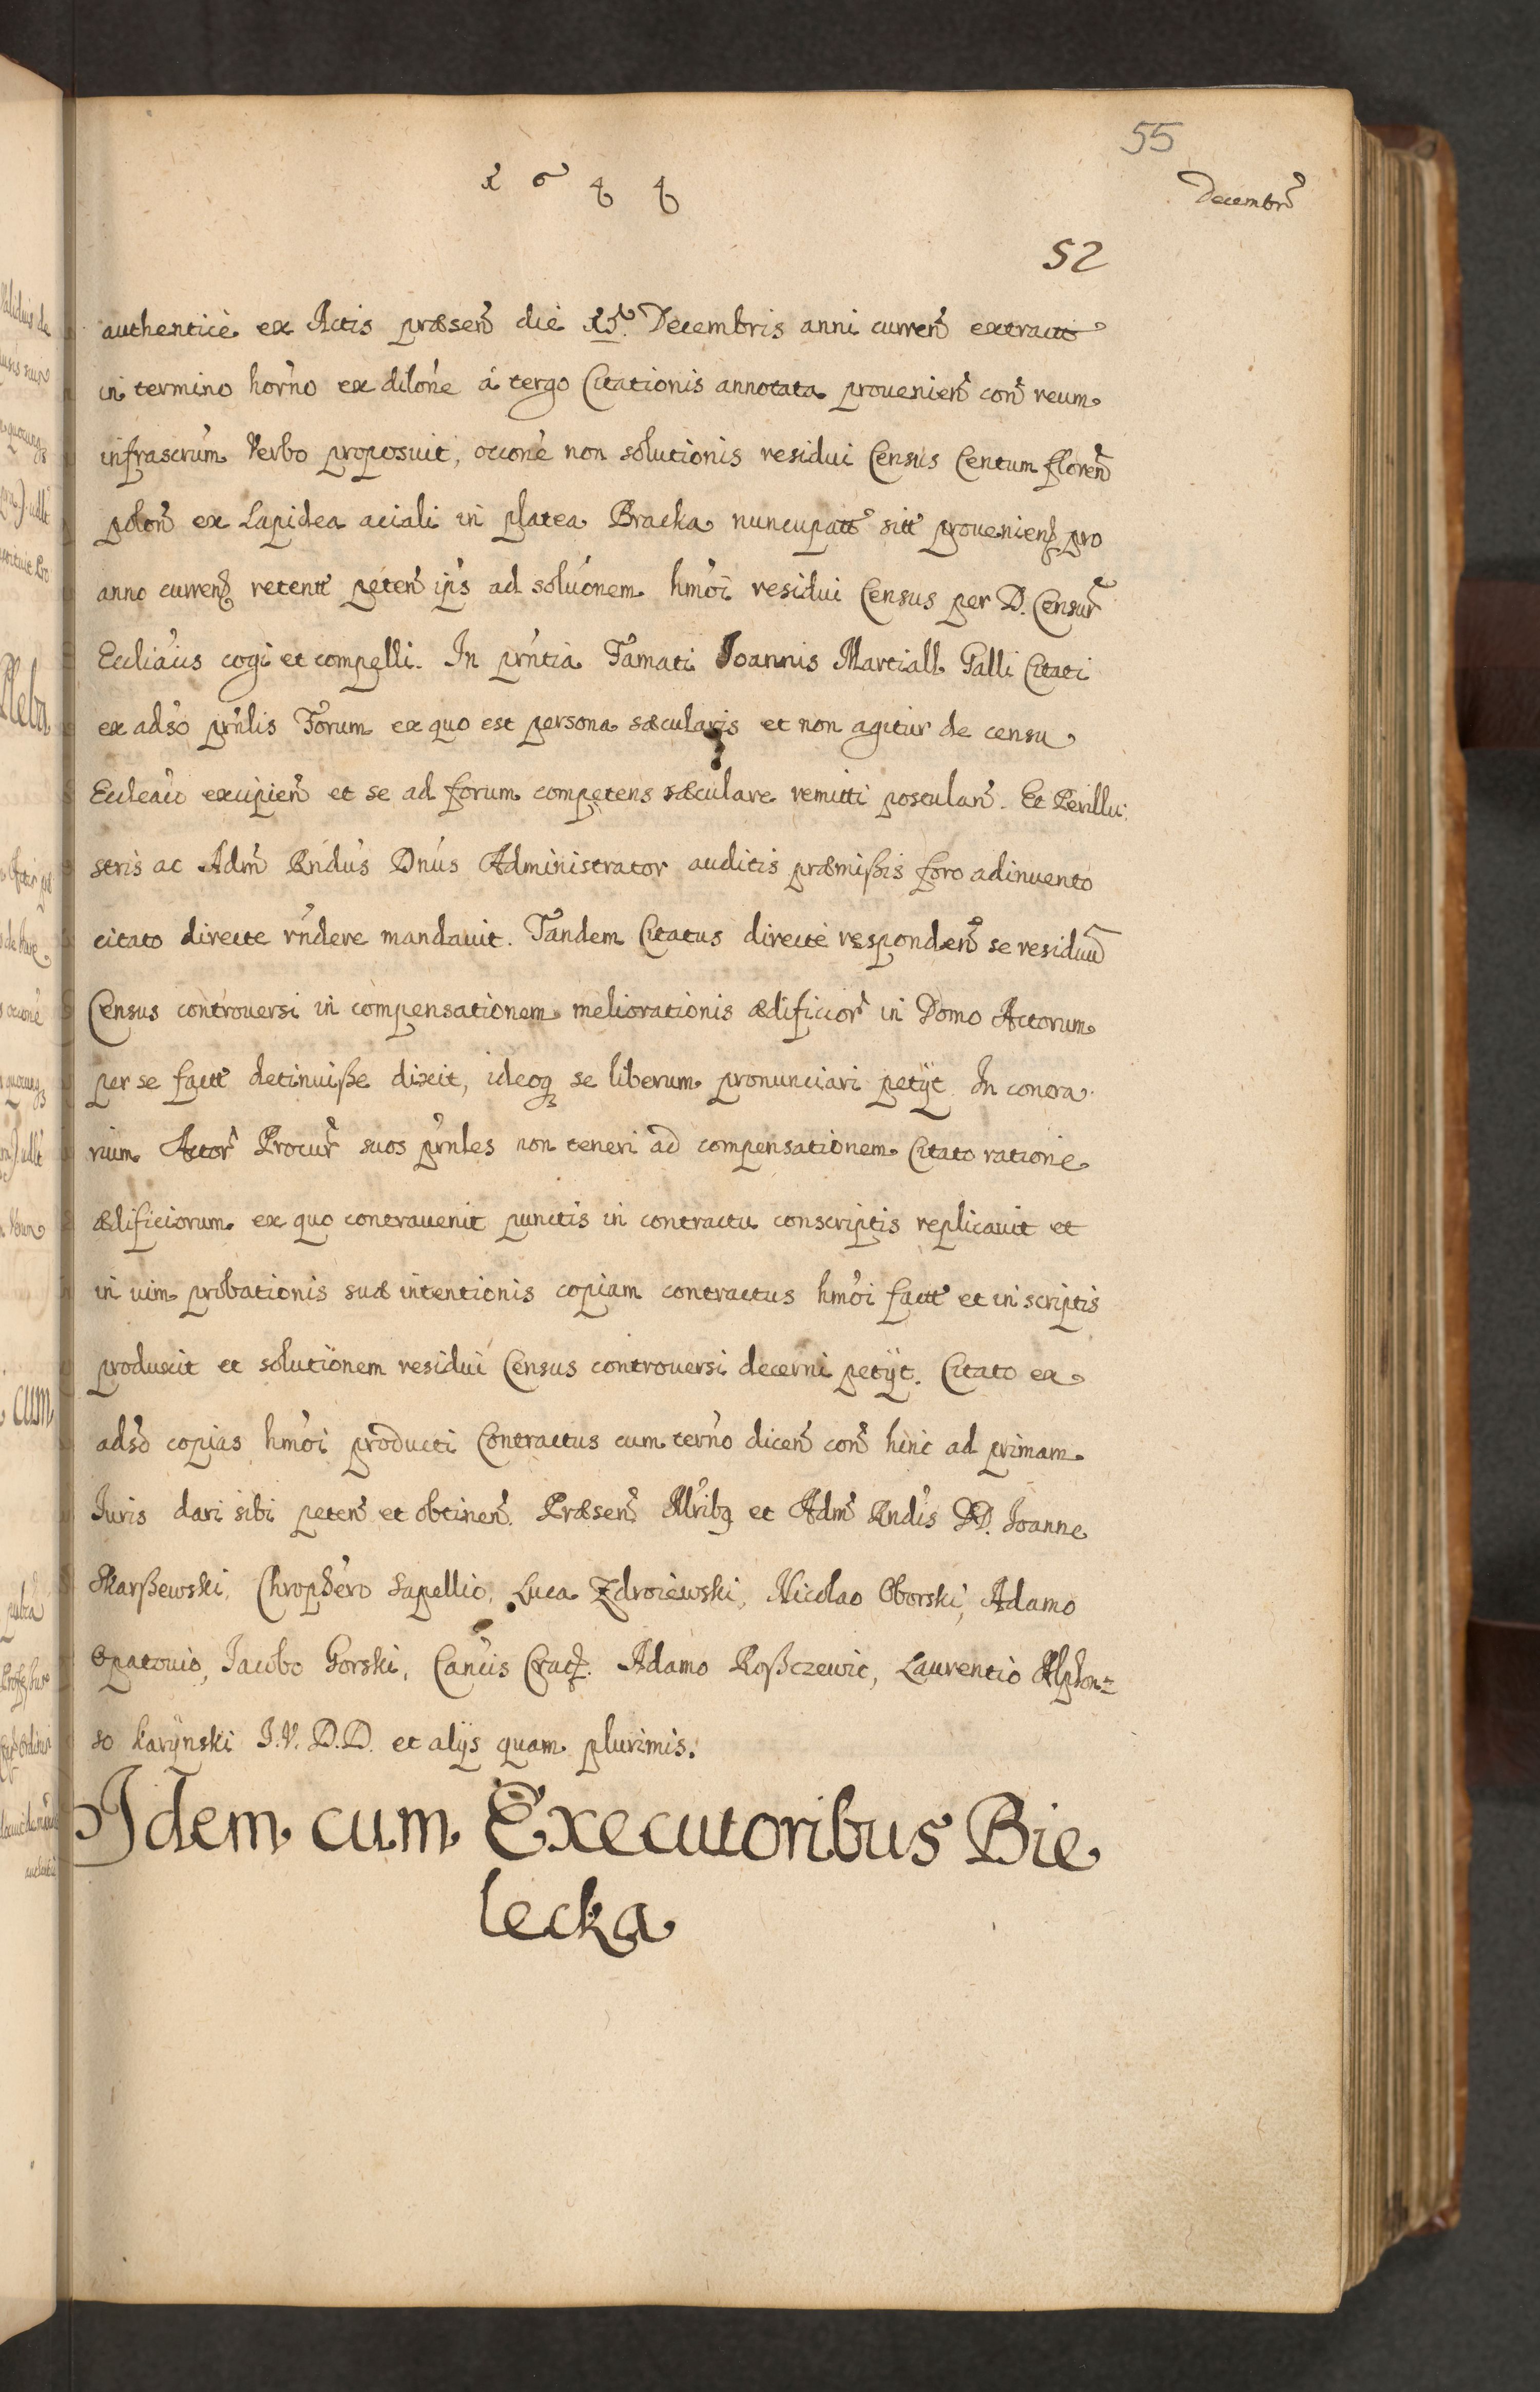 55
1644
Decembr
52
authentice ex Actis præsen die 15. Decembris anni curren extractt
in termino horno ex dilone á tergo Citationis annotata prouenien con reum
infrascrum Verbo proposuit, occone non solutionis residui Census Centum floren
polon ex Lapidea aciali in platea Bracka nuncupatt sitt prouenien pro
anno curren retentt peten ips ad soluonem hmoi residui Census per D. Censur
Eccliaus cogi et compelli. In prntia Famati Joannis Martiall Galli Citati
ex adso prnlis Forum ex quo est persona sæcularis et non agitur de censu
Eccleaco excipien et se ad forum competens sæculare remitti postulan. Et Perillu:
stris ac Adm Rndus Dnus Administrator auditis præmißis foro adinuento
citato directe rndere mandauit. Tandem Citatus directe responden se residuu
Census controuersi in compensationem meliorationis ædificior in Domo Actorum
per se factt detinuiße dixit, ideoq se liberum pronunciari petijt. In contra
rium Actor Procur suos prnles non teneri ad compensationem Citato ratione
ædificiorum ex quo contrauenit punctis in contractu conscriptis replicauit et
in uim probationis suæ intentionis copiam contractus hmoi factt et in scriptis
produxit et solutionem residui Census controuersi decerni petijt. Citato ex
adso copias hmoi producti Contractus cum terno dicen con hinc ad primam
Iuris dari sibi peten et obtinen. Præsen Illribq et Adm Rndis DD. Joanne
Skarßewski, Chrophero Sapellio, Luca Zdroiewski, Nicolao Oborski, Adamo
Opatouio, Jacobo Gorski, Cancis Crac. Adamo Roßczewic, Laurentio Alphon=
so Karÿnski J.V.D.D. et alijs quam plurimis.
Idem cum Executoribus Bie
lecka